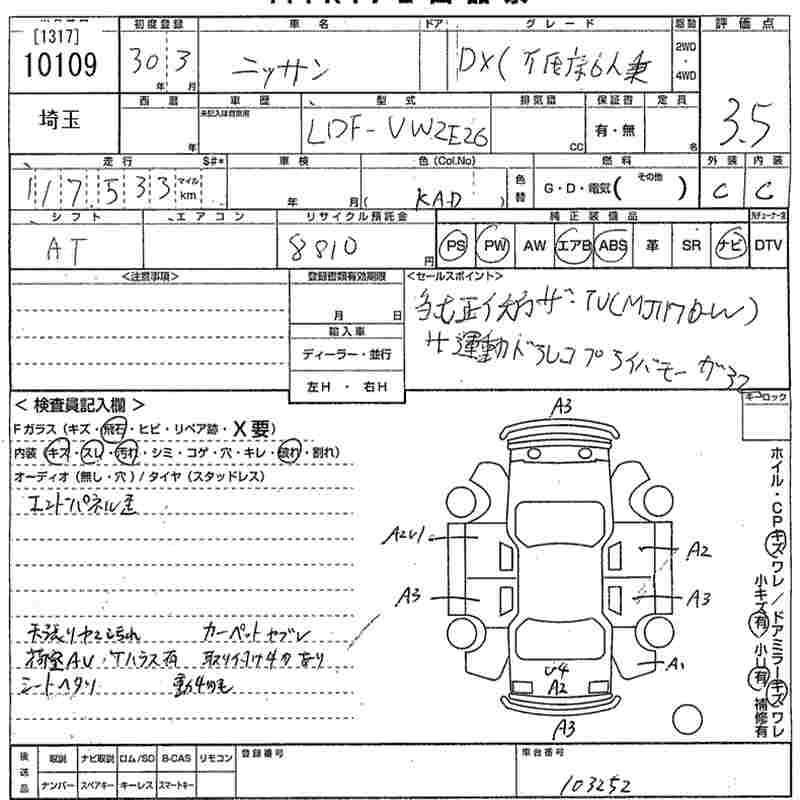 [1317]
10109
初度登録 車名 ドア グレード 駆動 評価点
30 3 年 月
ニッサン
DX( 低床6人乗
2WD・4WD
3.5
埼玉
西暦 車歴 型式 排気量 保証書 定員
年
未記入は自家用
LDF-VW2E26
CC
有・無
名
走行 $#* 車検 色(Col.No) 燃料 外装 内装
117,533 マイル km
年 月
( KAD )
色替
G・D・電気( その他 )
C C
シフト エアコン リサイクル預託金 純正装備品
AT
8810 円
PS PW AW エアB ABS 革 SR ナビ DTV
<注意事項> 登録書類有効期限 <セールスポイント>
月 日
輸入車
ディーラー・並行
左H・右H
TV(MJ117D-W)
連動ドラレコ プライバシーガラス
<検査員記入欄>
キーロック
Fガラス(キズ・飛石・ヒビ・リペア跡・X要)
内装(キズ・スレ・汚れ・シミ・コゲ・穴・キレ・破れ・割れ)
オーディオ(無し・穴)/タイヤ(スタッドレス)
天張りヤブレ汚れ カーペットヤブレ
荷室AU・ 有 取り付け穴あり
シートヘタリ
A3
A2U1
A2
A3
A3
A1
U4
A2
A3
ホイル・CPキズワレ/ドアミラーキズワレ
小キズ有 小U有 補修有
後送品 取説 ナビ取説 ロム/SD B-CAS リモコン 登録番号 車台番号
ナンバー スペアキー キーレス スマートキー
103252